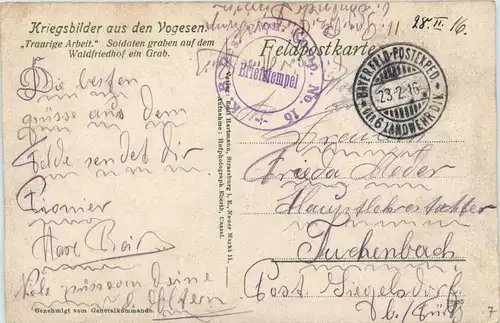 Kriegsbilder aus den Vogesen.
„Traurige Arbeit.“ Soldaten graben auf dem
Waldfriedhof ein Grab.
Feldpostkarte
28. II. 16.
Briefstempel
No. 16
BAYER. FELD-POSTEXPED.
23.2.16
DER 6. LANDWEHR DIV.
Die besten
grüsse aus dem
Felde sendet dir
Pionier
Frieda
Hauptlehrerstochter
Tuchenbach
Post. Siegelsdorf
b/ Fürth
deine
Eltern
Verlag: Emil Hartmann, Strassburg i. E., Neuer Markt 11.
Aufnahme: Hofphotograph Eberth, Cassel.
Genehmigt vom Generalkommando.
7